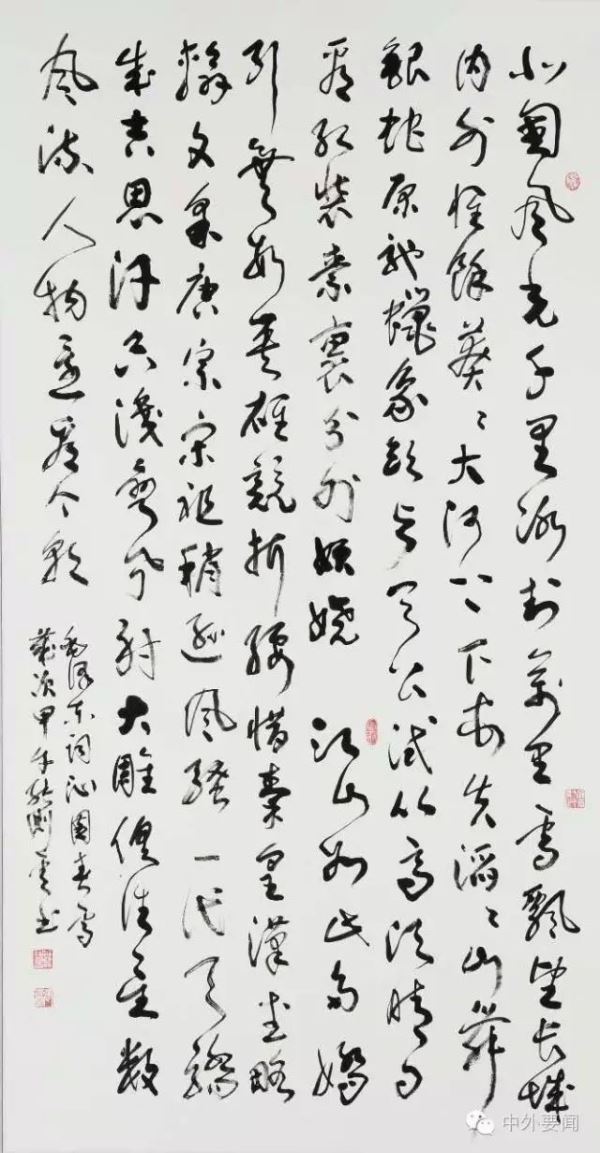 北國风光千里冰封萬里雪飘望长城
内外惟餘莽々大河上下顿失滔々山舞
銀蛇原馳蠟象欲与天公试比高须晴日
看红装素裹分外妖娆 江山如此多嬌
引無数英雄競折腰惜秦皇漢武略
輸文采唐宗宋祖稍逊风骚一代天驕
成吉思汗只識弯弓射大雕俱往矣数
风流人物还看今朝
毛泽东词沁園春雪
歲次甲午 书
中外要闻